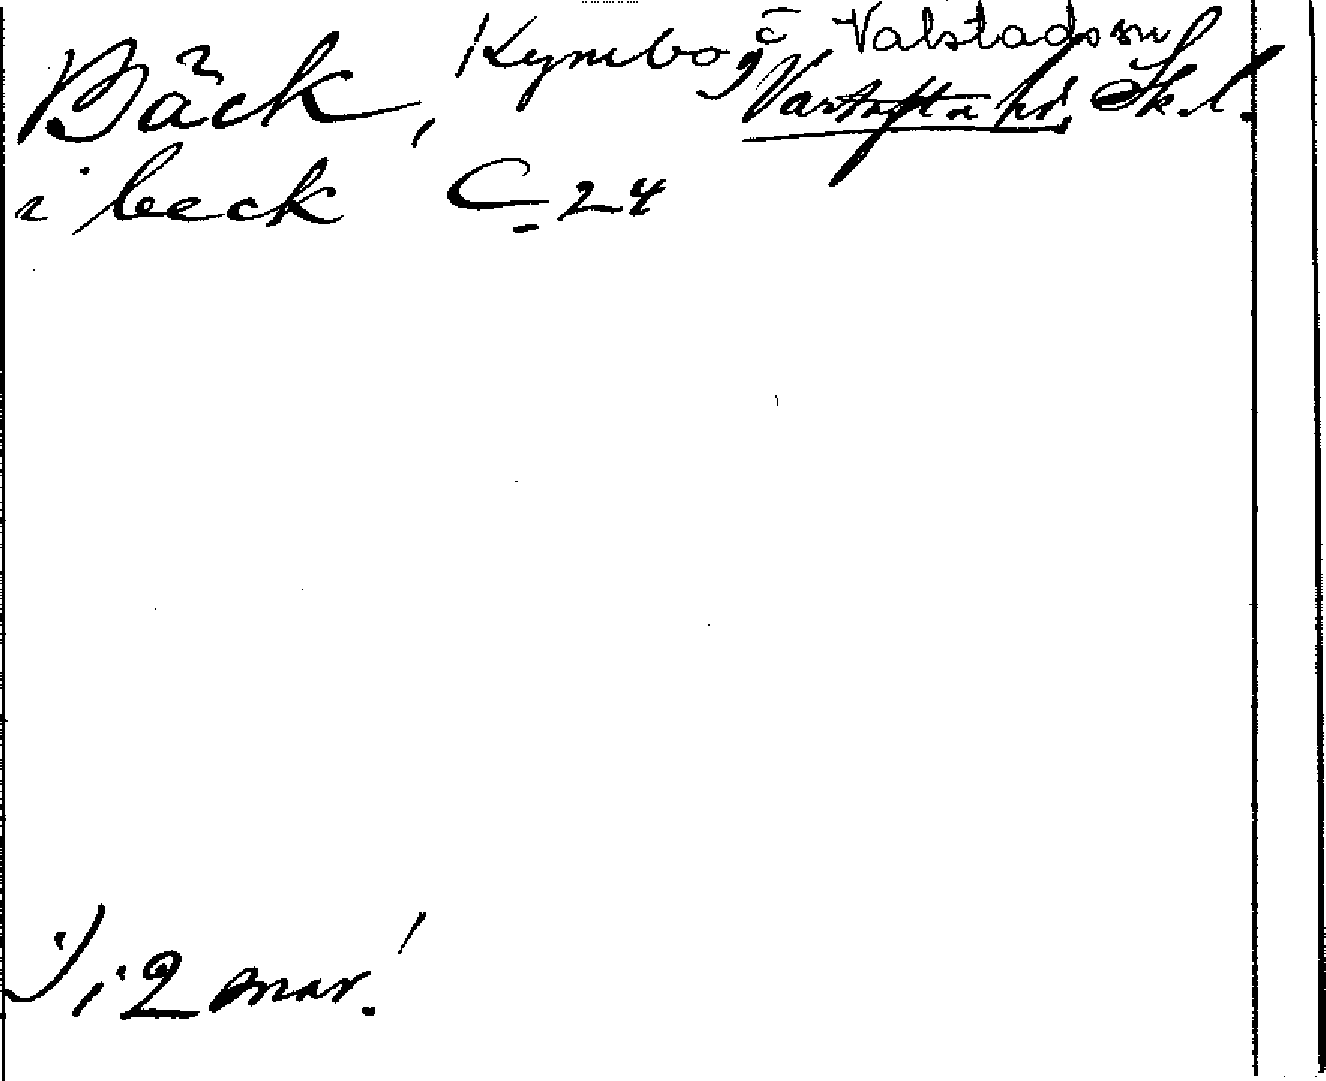 Bäck, Kymbo i Valstads sn
Vartofta hd. Sk. l.
i beck C 24
i 2 mar.!